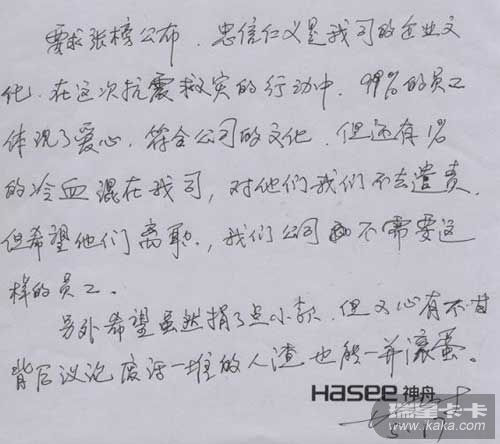 要求张榜公布．忠信仁义是我司的企业文
化．在这次抗震救灾的行动中．99%的员工
体现了爱心，符合公司的文化．但还有1%
的冷血混在我司，对他们我们不去谴责．
但希望他们离职．，我们公司不需要这
样的员工。
另外希望虽然捐了点小款．但又心有不甘
背后议论废话一堆的人渣也能一并滚蛋。
Hasee 神舟
瑞星卡卡
www.kaka.com